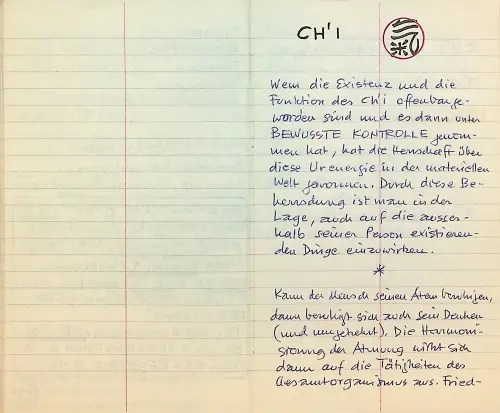 CH'I
氣
Wem die Existenz und die
Funktion des Ch'i offenbar ge-
worden sind und es dann unter
BEWUSSTE KONTROLLE genom-
men hat, hat die Herrschaft über
diese Urenergie in der materiellen
Welt gewonnen. Durch diese Be-
herrschung ist man in der
Lage, auch auf die ausser-
halb seiner Person existieren-
den Dinge einzuwirken.
*
Kann der Mensch seinen Atem beruhigen,
dann beruhigt sich auch sein Denken
(und umgekehrt). Die Harmoni-
sierung der Atmung wirkt sich
dann auf die Tätigkeiten des
Gesamtorganismus aus. Fried-